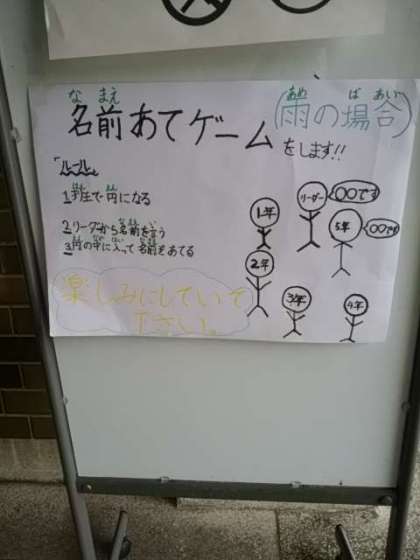 名前あてゲーム
(雨の場合)
をします!!
「ルール」
1班で円になる
2リーダーから名前を言う
3円の中に入って名前をあてる
楽しみにしていて
下さい。
リーダー
〇〇です
1年
5年
〇〇です
2年
3年
4年